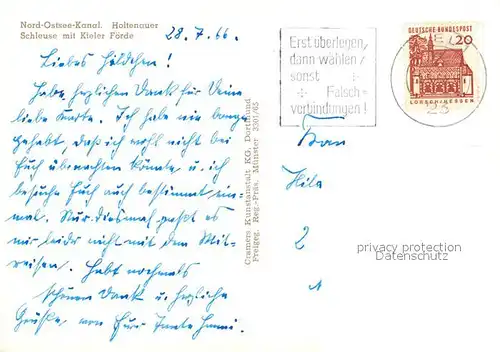 Nord-Ostsee-Kanal. Holtenauer
Schleuse mit Kieler Förde
28.7.66.
Liebes Hildchen!
Habe herzlichen Dank für Deine
liebe Karte. Ich habe nie Bange
gehabt, dass ich wohl nicht bei
Euch übernachten könnte u. ich
besuche Euch auch bestimmt ein-
mal. Nur diesmal geht es
mir leider nicht mit dem Mit-
reisen. Habt nochmals
schönen Dank u. herzliche
Grüße, von Eurer Tante Hanni.
Cramers Kunstanstalt KG. Dortmund
Freigeg. Reg.-Präs. Münster 3391/65
Erst überlegen,
dann wählen
sonst
Falsch-
verbindungen!
DEUTSCHE BUNDESPOST
20
LORSCH/HESSEN
23
Frau
Hila
2
privacy protection
Datenschutz